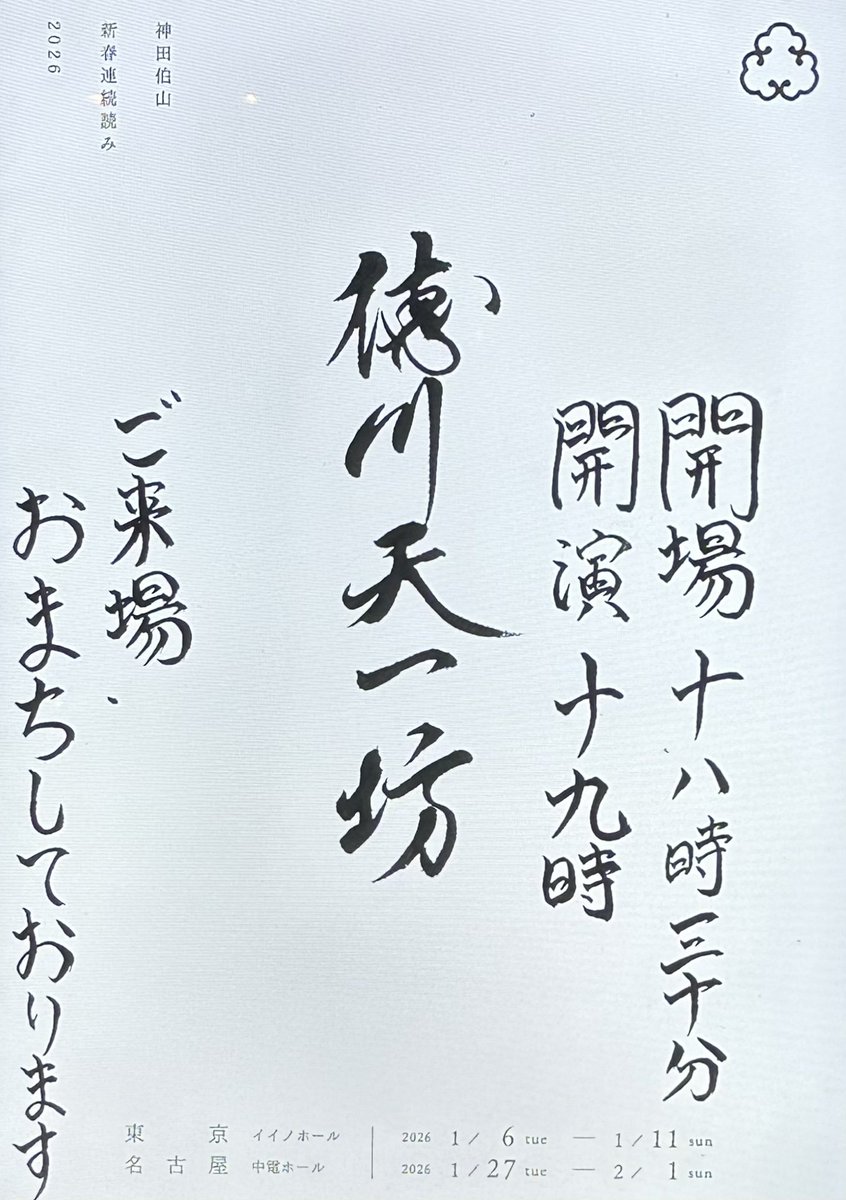 開場 十八時三十分
開演 十九時
徳川天一坊
ご来場
おまちしております
神田伯山
新春連続読み
2026
東京 イイノホール 2026 1/6 tue — 1/11 sun
名古屋 中電ホール 2026 1/27 tue — 2/1 sun